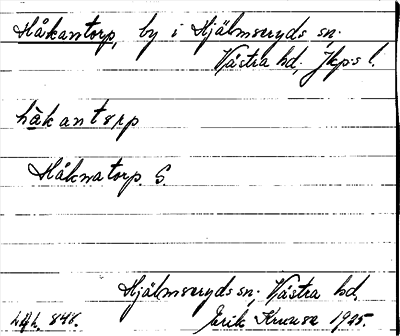 Håkantorp, by i Hjälmseryds sn.
Västra hd, Jkps l.
håkantərp
Håknatorp. S.
Hjälmseryds sn, Västra hd.
848.
Erik Kruuse 1925.